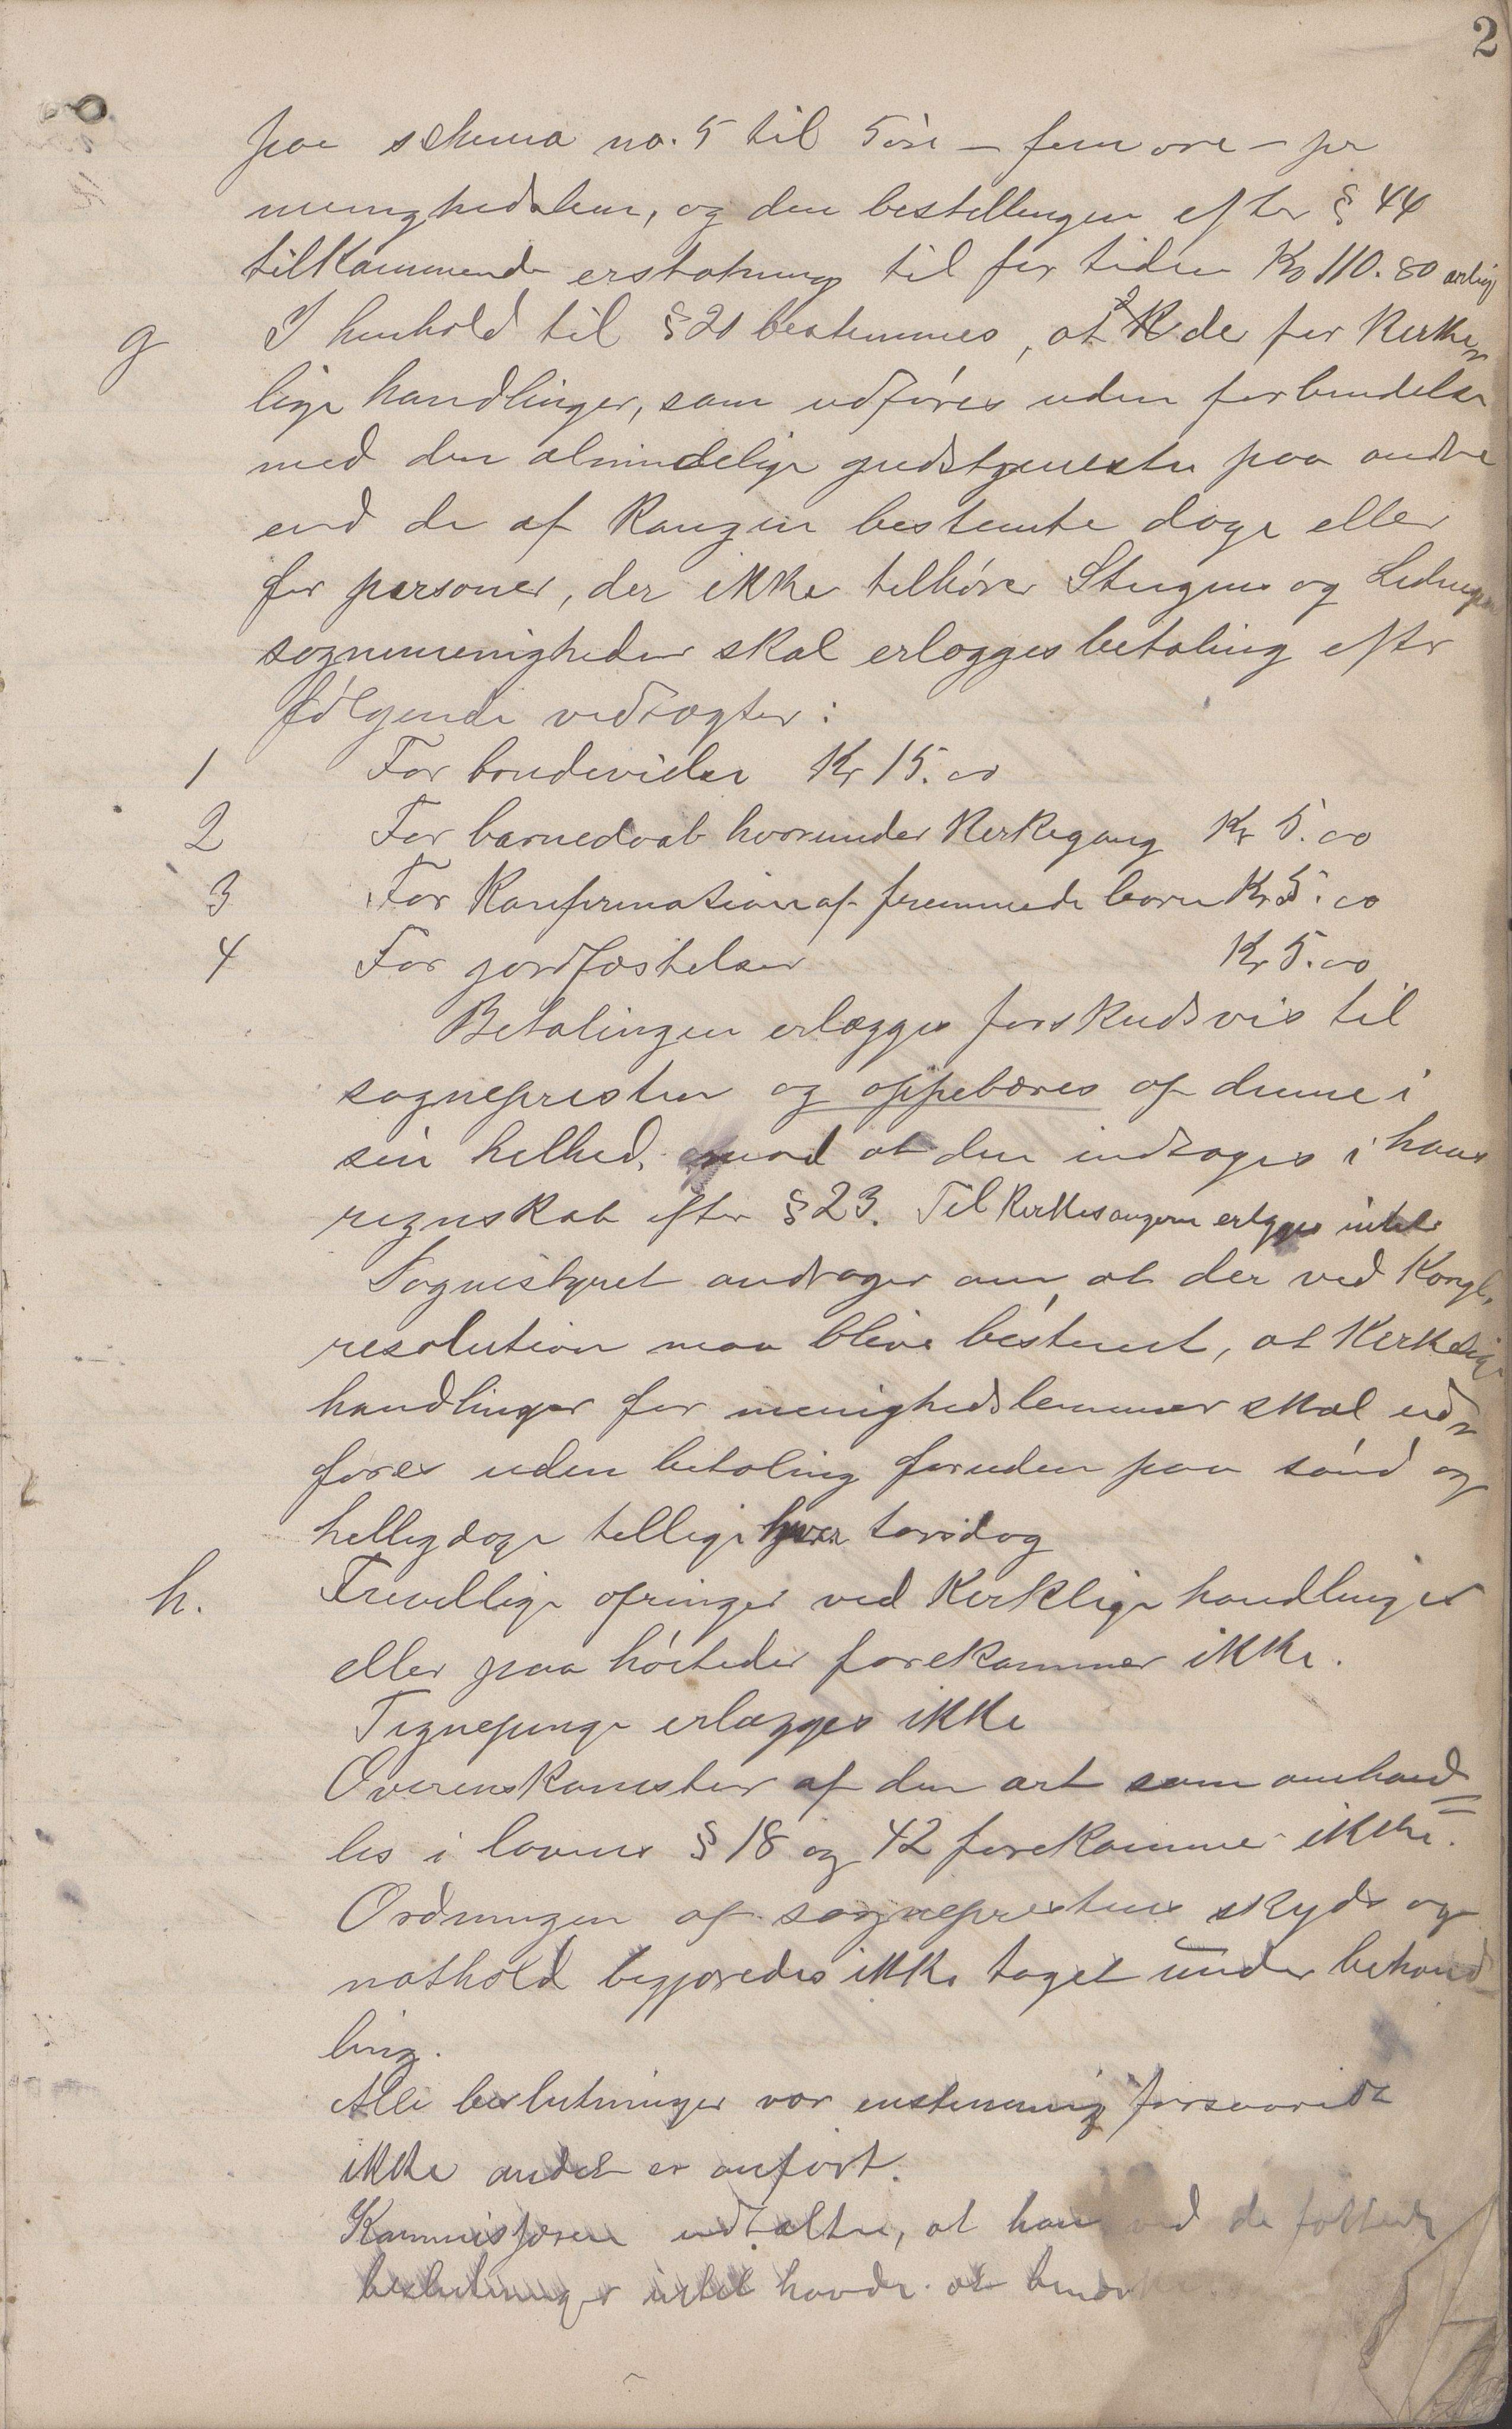 2
paa schema no. 5 til 5 öre – fem öre – pr
menighedslem, og den bestillingen efter § 44
tilkommende erstatning til for tiden Kr 110.80 aarlig
g I henhold til § 20 bestemmes, at der for kirke=
lige handlinger, som udföres uden forbindelse
med den almindelige gudstjeneste paa andre
end de af Kongen bestemte dage eller
for personer, der ikke tilhörer Stugun og
sognemenigheder skal erlægges betaling efter
fölgende vedtægter:
1 For brudevielse Kr 15.00
2 For barnedaab hvorunder kirkegang Kr 5.00
3 For konfirmation af fremmede börn Kr 5.00
4 For jordfæstelser Kr 5.00
Betalingen erlægges forskudsvis til
sognepresten og oppebæres af denne i
sin helhed, mod at den indtages i hans
regnskab efter § 23. Til kirkesangeren erlægges intet.
Sognestyret andrager om, at der ved Kongl.
resolution maa blive bestemt, at kirkelige
handlinger for menighedslemmer skal ud=
föres uden betaling foruden paa sönd og
helligdage tillige hver torsdag
h. Frivillige ofringer ved kirkelige handlinger
eller paa höitider forekommer ikke.
Tegnepenge erlægges ikke
Overenskomster af den art som omhand=
les i lovens § 18 og 42 forekommer ikke.
Ordningen af sogneprestens skyds og
nathold begjæredes ikke taget under behand
ling.
Alle beslutninger var enstemmig forsaavidt
ikke andet er anfört.
Kommissæren udtalte, at han ved de fattede
beslutninger intet havde at